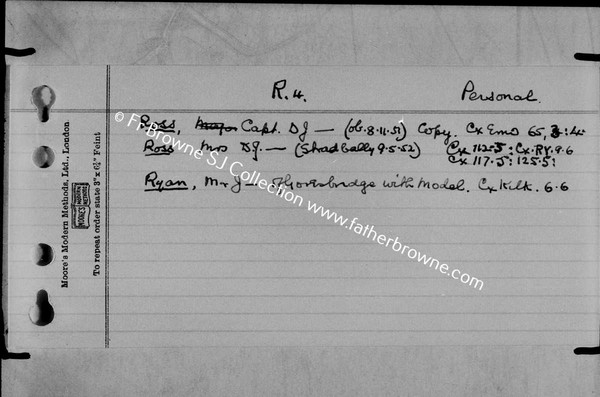 R.4. Personal.
Ross, Major Capt. DJ — (ob. 8.11.51) Copy. Cx Emo 65,
Ross Mrs DJ. — (Stradbally 9.5.52) Cx 112.5: Cx.RY.9.6
Cx 117.5: 125.5:
Ryan, Mr J — with Model. Cx Kilk. 6.6
Moore's Modern Methods, Ltd., London
MOORE'S MODERN METHODS
To repeat order state 3" x 6¼" Feint
© Fr Browne SJ Collection www.fatherbrowne.com